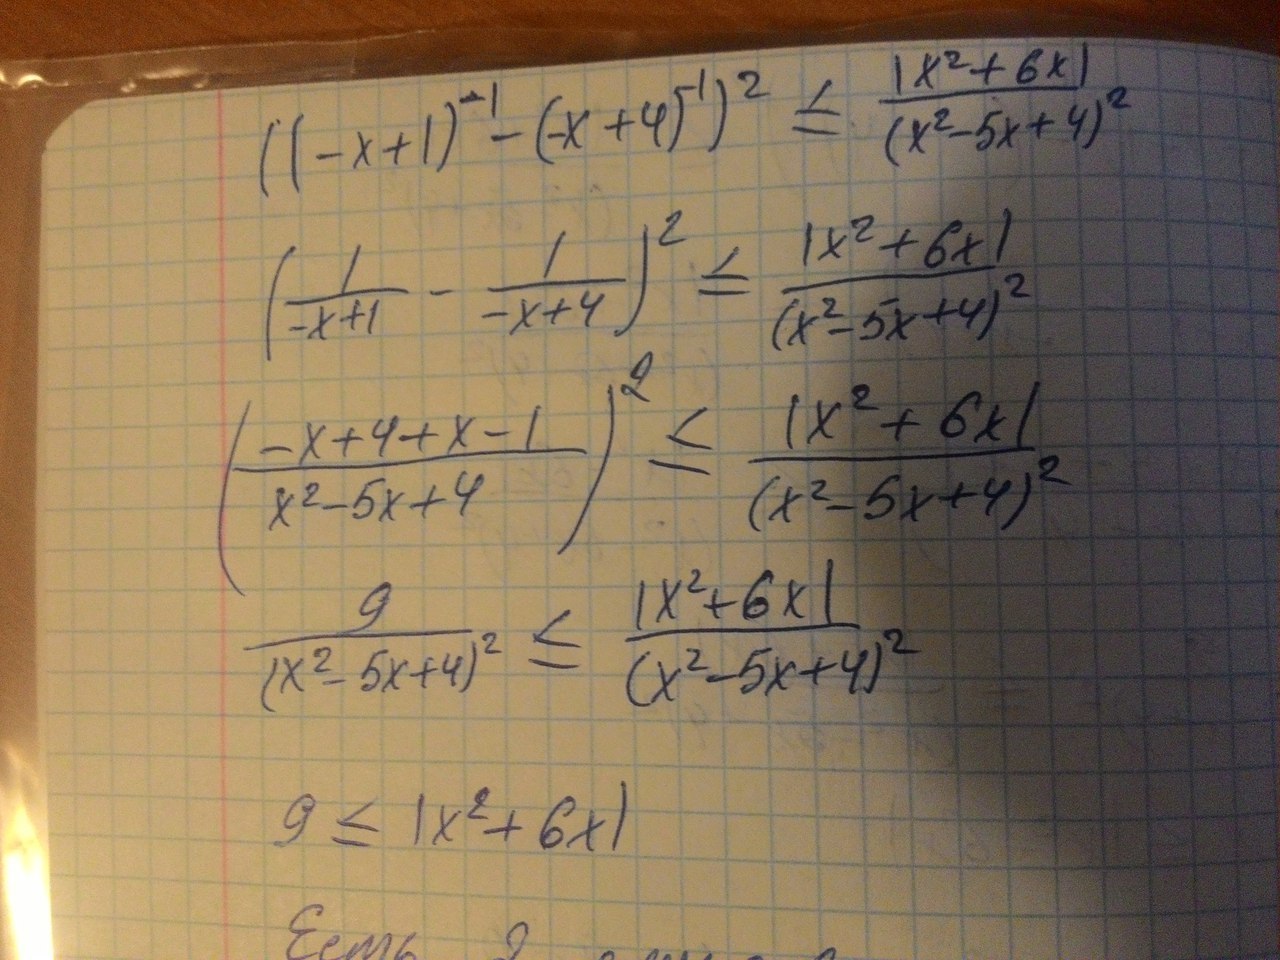 ((-x+1)^-1 - (-x+4)^-1)^2 ≤ |x^2+6x| / (x^2-5x+4)^2
(1/(-x+1) - 1/(-x+4))^2 ≤ |x^2+6x| / (x^2-5x+4)^2
((-x+4+x-1)/(x^2-5x+4))^2 ≤ |x^2+6x| / (x^2-5x+4)^2
9/(x^2-5x+4)^2 ≤ |x^2+6x| / (x^2-5x+4)^2
9 ≤ |x^2+6x|
Есть 2